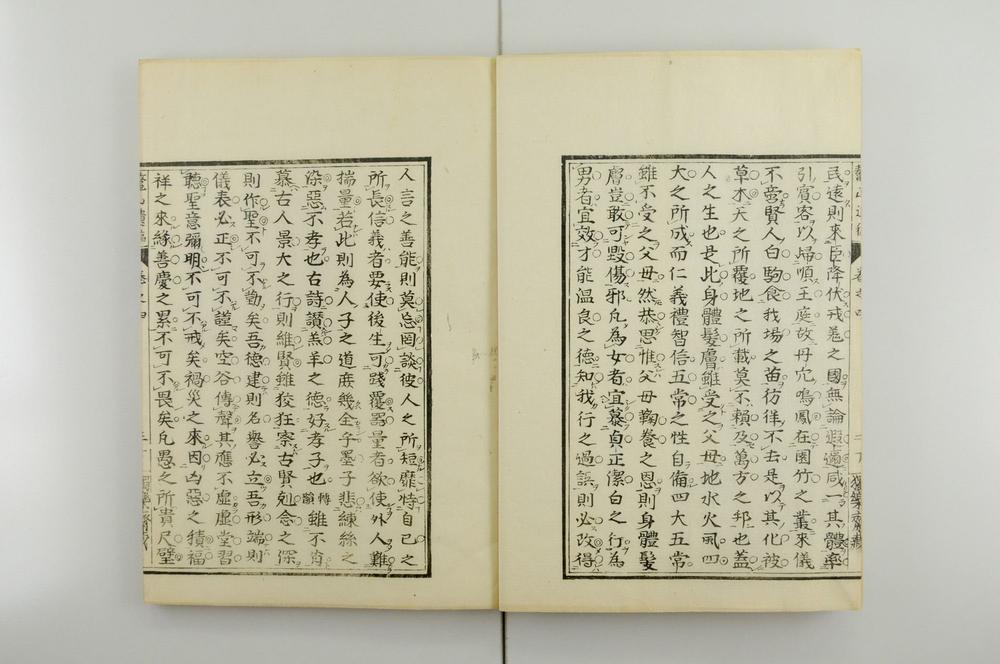 民遠則來臣降伏戎羗之國無論遐邇咸一其體率
引賓客以歸順王庭故丹穴鳴鳳在園竹之叢來儀
不啻賢人白駒食我場之苗彷徉不去是以其化被
草木天之所覆地之所載莫不賴及萬方之邦也蓋
人之生也是此身體髮膚雖受之父母地水火風四
大之所成而仁義禮智信五常之性自備四大五常
雖不受之父母然恭思惟父母鞠養之恩則身體髮
膚豈敢可毀傷邪凡為女者宜慕貞正潔白之行為
男者宜效才能溫良之德知我行之過誤則必改得
人言之善能則莫忘罔談彼人之所短靡恃自己之
所長信義者要使後生可踐覆器量者欲使外人難
揣量若此則為人子之道庶幾全乎墨子悲練絲之
染惡不孝也古詩讃羔羊之德好孝子也轉韻雖不肖
慕古人景大之行則維賢雖狡狂寀古賢剋念之深
則作聖不可不勤矣吾德建則名譽必立吾形端則
儀表必正不可不謹矣空谷傳聲其應不虛虛堂習
聽聖意彌明不可不戒矣禍災之來因凶惡之積福
祥之來緣善慶之累不可不畏矣凡愚之所貴尺璧
卷之四